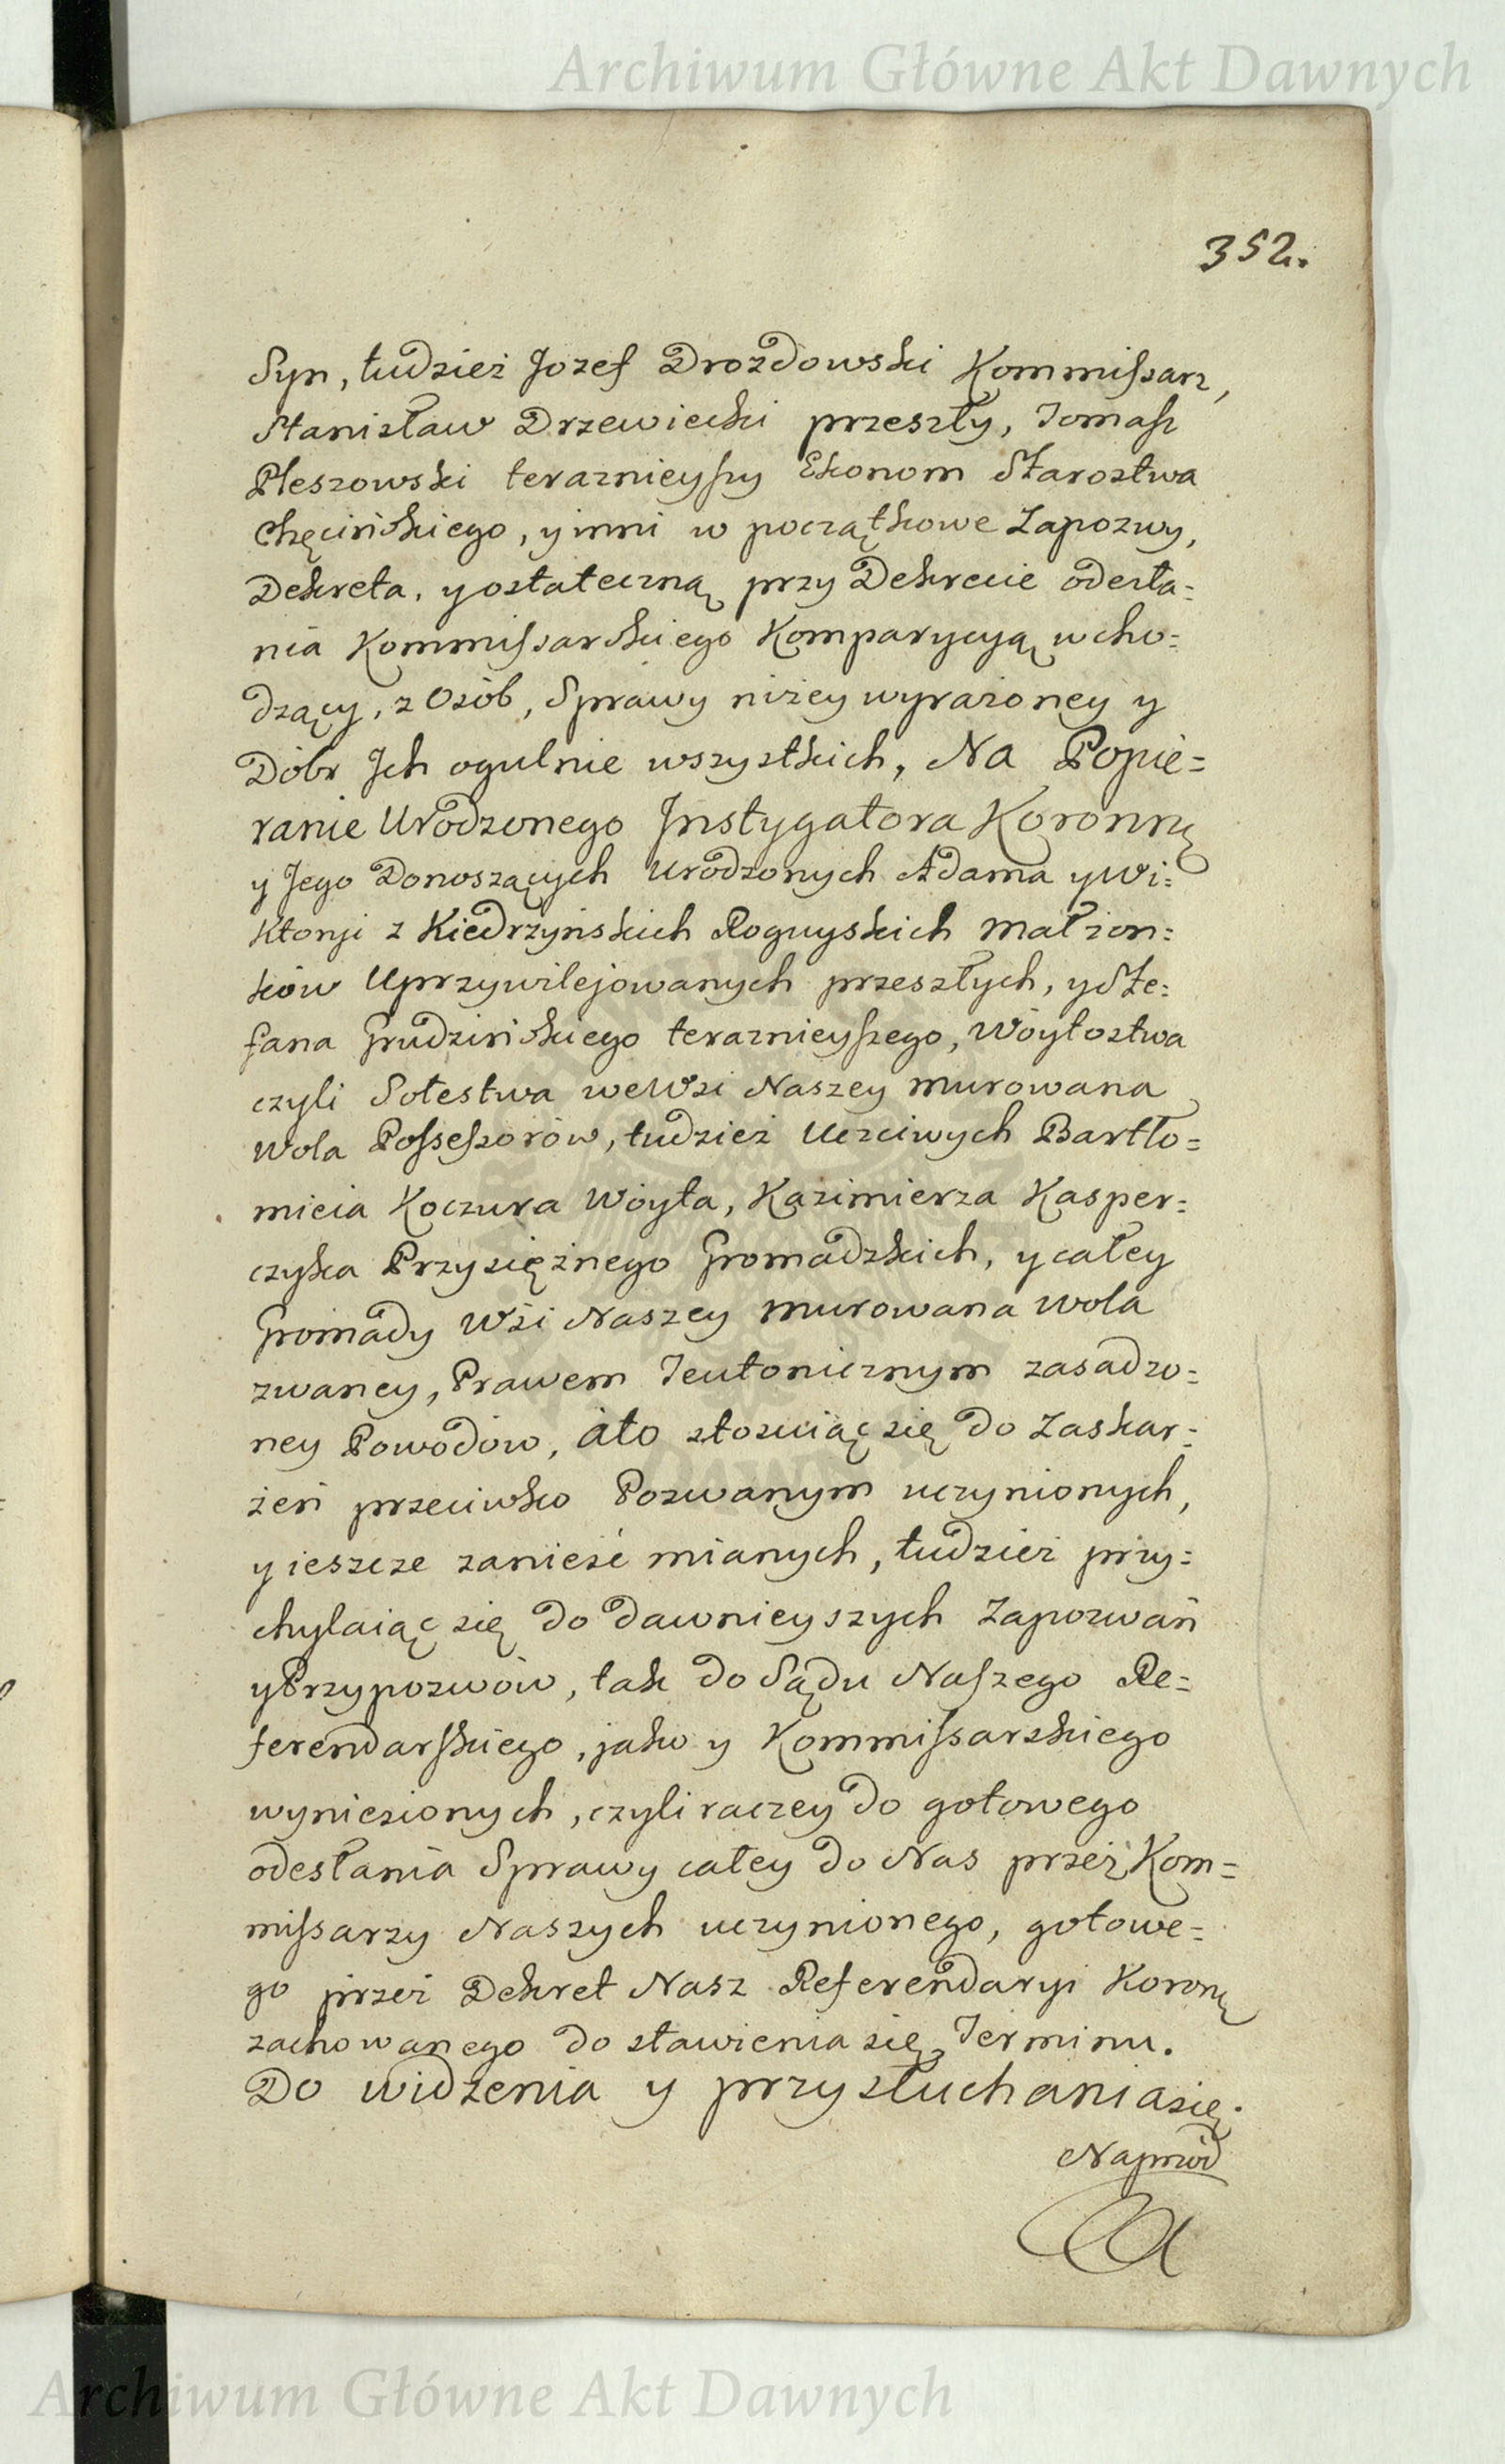 Archiwum Główne Akt Dawnych
352.
Syn, tudzież Jozef Drozdowski Kommissarz,
Stanisław Drzewiecki przeszły, Tomasz
Pleszowski teraznieyszy Ekonom Starostwa
Chęcińskiego, y inni w początkowe Zapozwy,
Dekreta, y ostateczną przy Dekrecie odesła=
nia Kommissarskiego Komparycyą wcho=
dzący, z Osób, Sprawy niżey wyrażoney y
Dóbr Jch ogulnie wszystkich, Na Popie=
ranie Urodzonego Jnstygatora Koronnę
y Jego Donoszących Urodzonych Adama y Wi=
ktoryi z Kiedrzyńskich Roguyskich Małżon=
ków Uprzywilejowanych przeszłych, y Ste=
fana Grudzińskiego teraznieyszego, Wóytostwa
czyli Sołestwa we Wsi Naszey Murowana
Wola Possessorów, tudzież Uczciwych Bartło=
mieia Koczura Wóyta, Kazimierza Kasper=
czyka Przysiężnego Gromadzkich, y całey
Gromady Wśi Naszey Murowana Wola
zwaney, Prawem Teutonicznym zasadzo=
ney Powodów, áto stosuiąc się do Zaskar=
żeń przeciwko Pozwanym uczynionych,
y ieszcze zanieść mianych, tudzież przy=
chylaiąc się do dawnieyszych Zapozwań
y Przypozwów, tak do Sądu Naszego Re=
ferendarskiego, jako y Kommissarskiego
wyniesionych, czyli raczey do gotowego
odesłania Sprawy całey do Nas przez Kom=
missarzy Naszych uczynionego, gotowe=
go przez Dekret Nasz Referendaryi Koronę
zachowanego do stawienia się Terminu.
Do widzenia y przysłuchania się.
Naprzód
Archiwum Główne Akt Dawnych